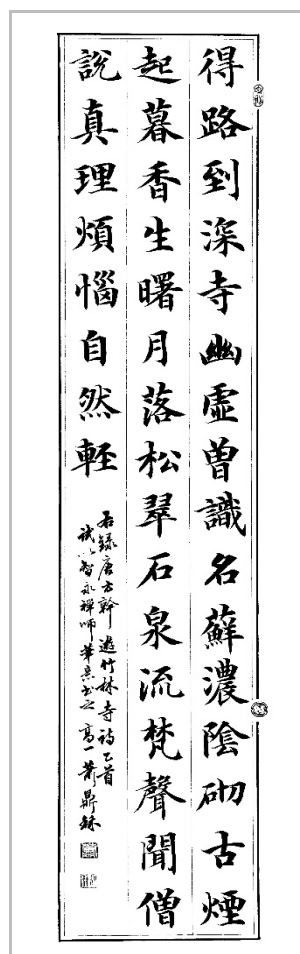 得路到深寺幽虛曾識名蘚濃陰砌古煙
起暮香生曙月落松翠石泉流梵聲聞僧
說真理煩惱自然輕
右錄唐方幹遊竹林寺詩乙首
試以智永禪師筆意書之 高一 鼎銘